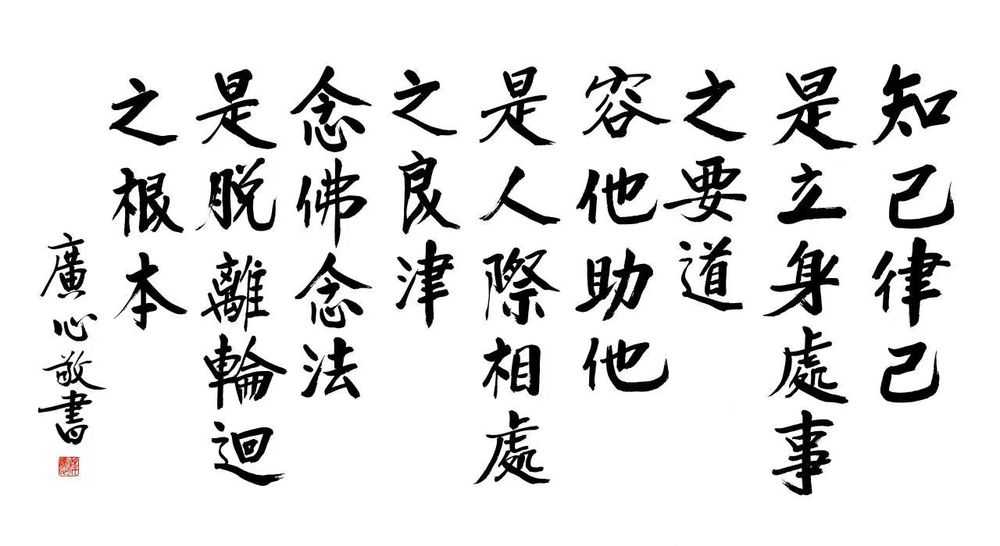 知己律己
是立身處事
之要道
容他助他
是人際相處
之良津
念佛念法
是脫離輪迴
之根本
廣心敬書